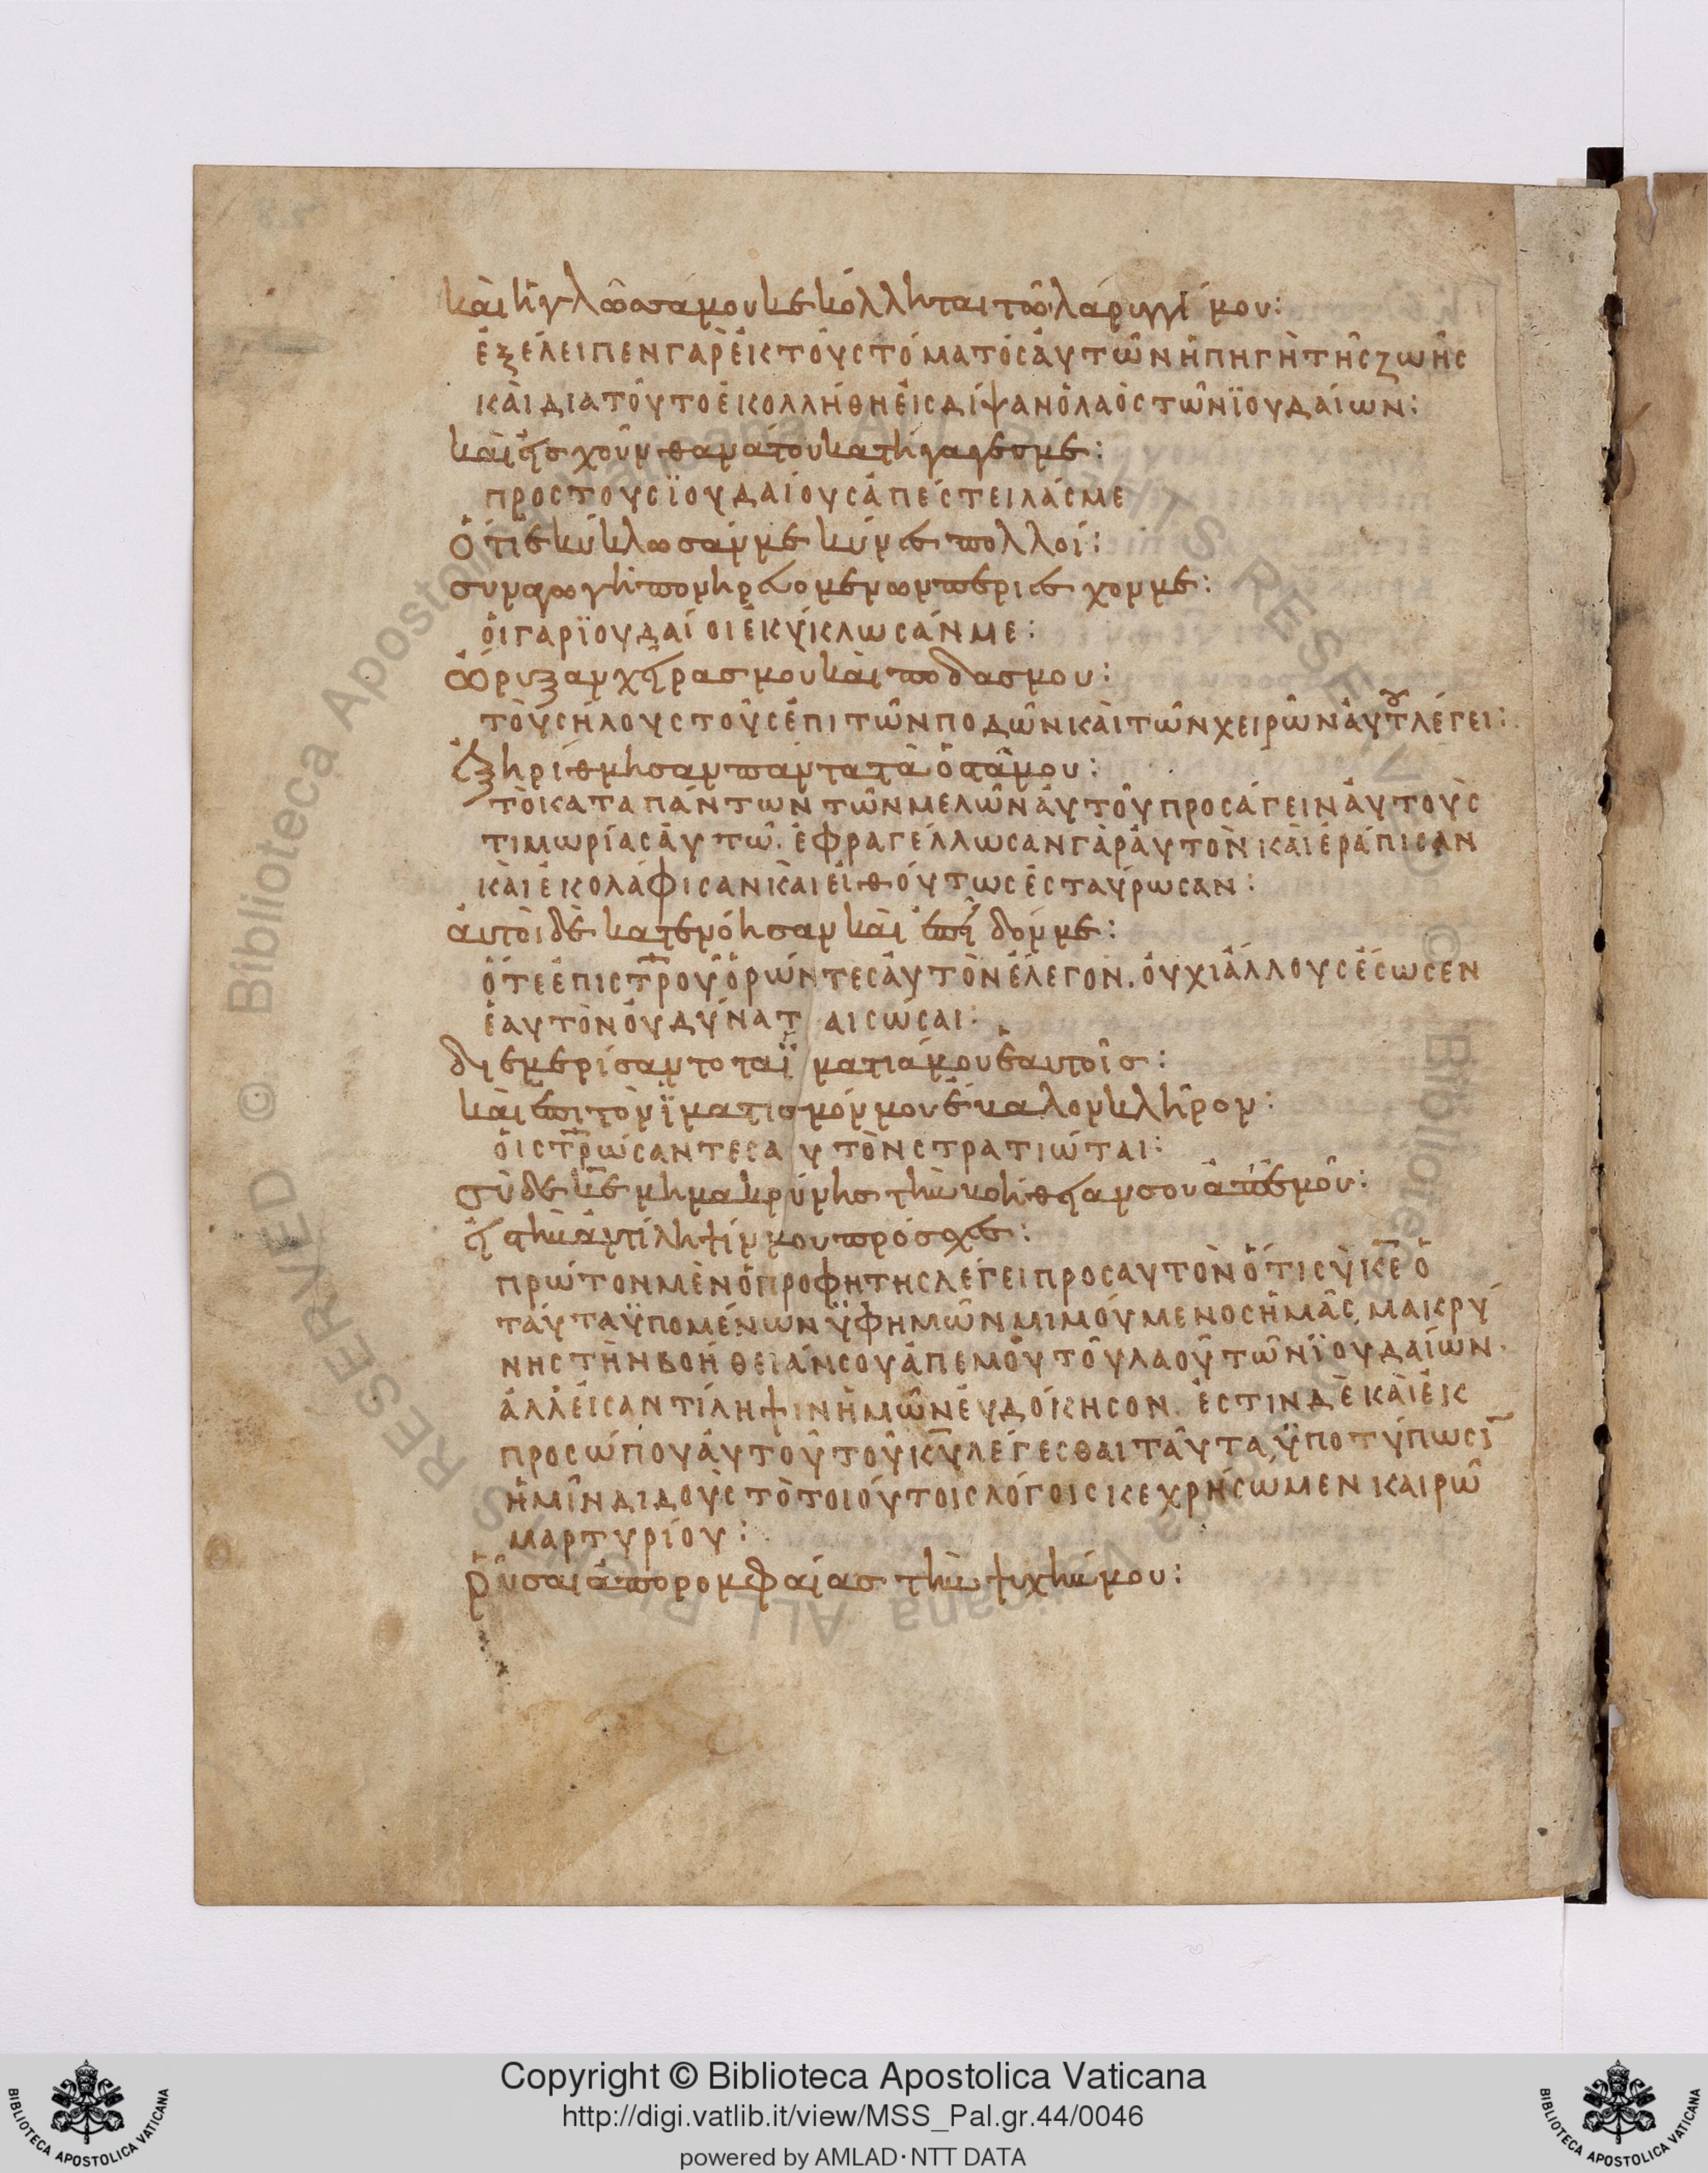 καὶ ἡ γλῶσσά μου κεκόλληται τῷ λάρυγγί μου:
ἐξέλειπεν γὰρ ἐκ τοῦ στόματος αὐτῶν ἡ πηγὴ τῆς ζωῆς
καὶ διατοῦτο ἐκολλήθη εἰς δίψαν ὁ λαὸς τῶν ϊουδαίων:
καὶ εἰς χοῦν θανάτου κατήγαγές με:
προς τους ϊουδαίους ἀπέστειλάς με
ὅτι ἐκύκλωσάν με κύνες πολλοί:
συναγωγὴ πονηρευομένων περιέσχον με:
ὁι γὰρ ϊουδαίοι ἐκύκλωσάν με:
ὤρυξαν χεῖρας μου καὶ ποδας μου:
τοὺς ἥλους τοὺς ἐπι τῶν ποδῶν καὶ τῶν χειρῶν ἀυτοῦ λέγει:
ἐξηρίθμησαν πάντα τὰ ὀστᾶ μου:
τὸ κατα πάντων τῶν μελῶν ἀυτοῦ προσάγειν ἀυτοὺς
τιμωρίας ἀυτῶ. ἐφραγέλλωσαν γὰρ ἀυτὸν καὶ ἐράπισαν
καὶ ἐκολάφισαν καὶ εἶθ ὅυτως ἐσταύρωσαν:
ἀυτοὶ δὲ κατενόησαν καὶ ἐπεῖδόν με:
ὅτε ἐπι στρου ὁρώντες ἀυτὸν ἔλεγον. ὀυχι ἄλλους ἔσωσεν
ἑαυτὸν ὀυ δύναται σώσαι:
διεμερίσαντο τα ϊματιά μου ἑαυτοῖς:
καὶ ἐπι τὸν ϊματισμόν μου ἔβαλον κλῆρον:
ὁι στρώσαντες αυτὸν στρατιώται:
σὺ δὲ κε μη μακρύνης τὴν βοήθειαν σου ἀπ' ἐμοῦ:
εἰς τὴν ἀντίληψίν μου πρόσχες:
πρώτον μὲν ὁ προφήτης λέγει προς αυτὸν ὅτι σὺ κε ὁ
τάυτα ϋπομένων ϋφ ημῶν μιμούμενος ἡμᾶς, μακρύ
νης τὴν βοήθειάν σου ἀπ εμοῦ τοῦ λαοῦ τῶν ϊουδαίων.
ἀλλ εἰς αντίληψιν ἡμῶν ἐυδόκησον. ἔστιν δὲ καὶ ἐκ
προσώπου ἀυτοῦ τοῦ κυ λέγεσθαι ταῦτα, ϋποτύπωσῑ
ἡμῖν διδοὺς τὸ τοιούτοις λόγοις κεχρήσωμεν καιρῶ
μαρτυρίου:
ῥῦσαι ἀπο ρομφαίας τὴν ψυχήν μου:
Copyright © Biblioteca Apostolica Vaticana
http://digi.vatlib.it/view/MSS_Pal.gr.44/0046
powered by AMLAD·NTT DATA
BIBLIOTECA APOSTOLICA VATICANA
BIBLIOTECA APOSTOLICA VATICANA